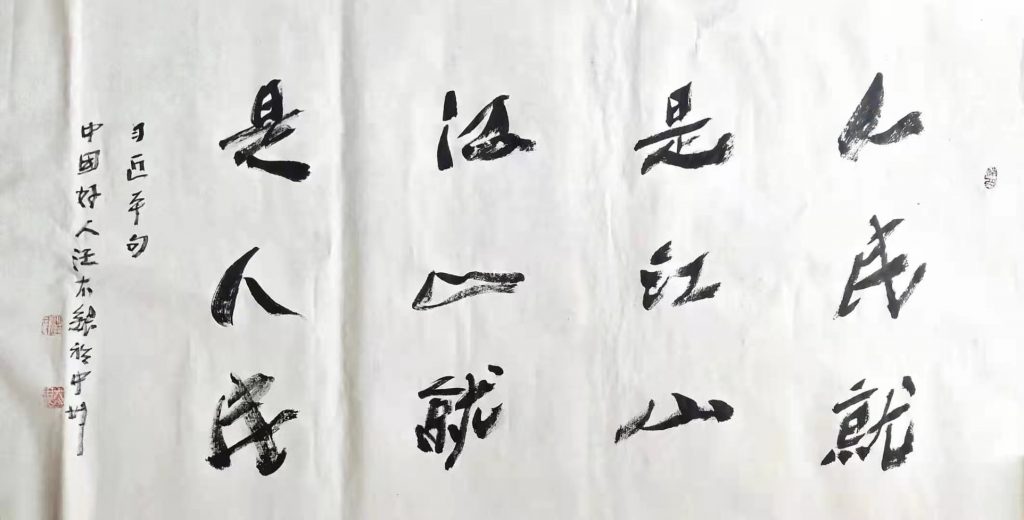 人民就
是江山
江山就
是人民
习近平句
中國好人汪木銀於中